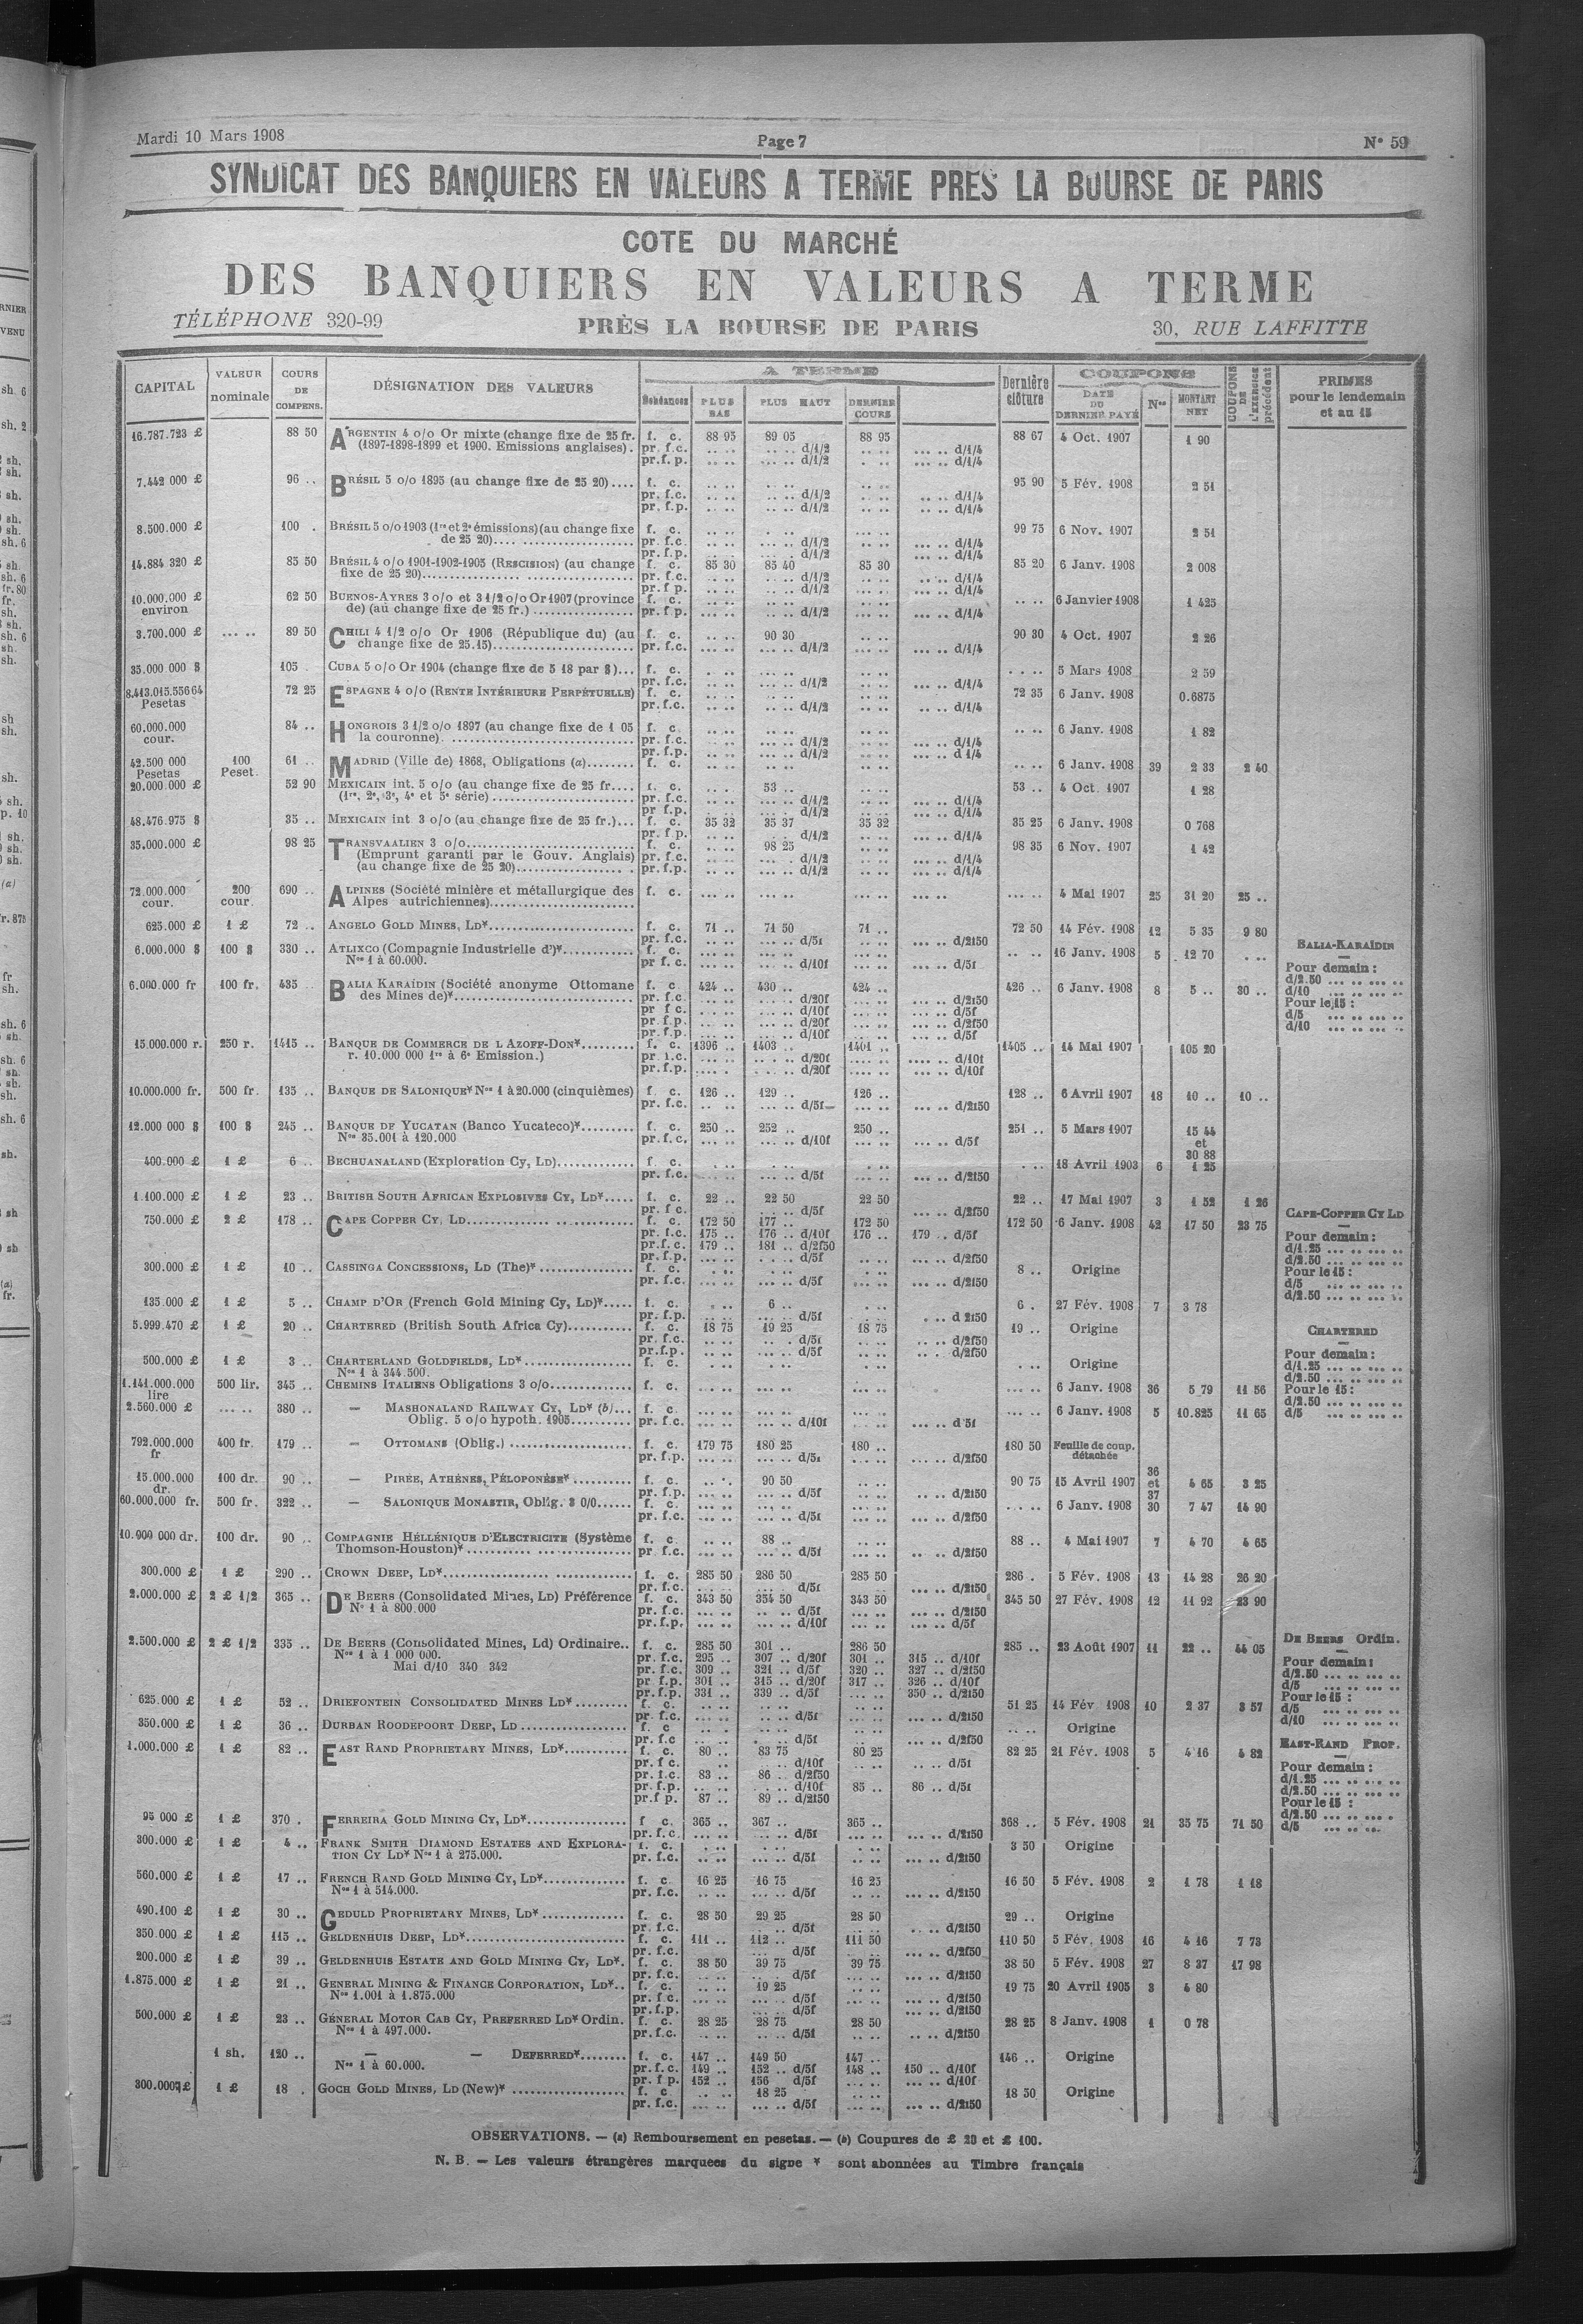 Mardi 10 Mars 1908 Page 7 N° 59
SYNDICAT DES BANQUIERS EN VALEURS A TERME PRES LA BOURSE DE PARIS
COTE DU MARCHÉ
DES BANQUIERS EN VALEURS A TERME
TÉLÉPHONE 320-99 PRÈS LA BOURSE DE PARIS 30, RUE LAFFITTE
CAPITAL VALEUR nominale COURS DE COMPENS. DÉSIGNATION DES VALEURS A TERME Échéances PLUS BAS PLUS HAUT DERNIER COURS Dernière clôture COUPONS DATE DU DERNIER PAYÉ Nos MONTANT NET COUPONS DE L'EXERCICE précédent PRIMES pour le lendemain et au 15
16.787.723 £ 88 50 ARGENTIN 4 o/o Or mixte (change fixe de 25 fr. f. c. 88 95 89 05 88 95 88 67 4 Oct. 1907 1 90
(1897-1898-1899 et 1900. Emissions anglaises). pr. f.c. .. .. .. .. d/1/2 .. .. .... .. d/1/4
pr.f. p. .. .. .... .. d/1/2 .... .. d/1/4
7.442 000 £ 96 .. BRÉSIL 5 o/o 1895 (au change fixe de 25 20).... f. c. 95 90 5 Fév. 1908 2 51
pr. f.c. d/1/2 d/1/4
pr. f.p. d/1/2 d/1/4
8.500.000 £ 100 . BRÉSIL 5 o/o 1903 (1re et 2e émissions)(au change fixe f. c. 99 75 6 Nov. 1907 2 51
de 25 20).... pr. f.c. d/1/2 d/1/4
pr. f.p. d/1/2 d/1/4
14.884 320 £ 85 50 BRÉSIL 4 o/o 1901-1902-1905 (RESCISION) (au change f. c. 85 30 85 40 85 30 85 20 6 Janv. 1908 2 008
fixe de 25 20).... pr. f.c. d/1/2 d/1/4
pr. f p. d/1/2
10.000.000 £ environ 62 50 BUENOS-AYRES 3 o/o et 3 1/2 o/o Or 1907 (province f. c. 6 Janvier 1908 1 425
de) (au change fixe de 25 fr.) .... pr. f p. d/1/2 d/1/4
3.700.000 £ .... .. 89 50 CHILI 4 1/2 o/o Or 1906 (République du) (au f. c. 90 30 90 30 4 Oct. 1907 2 26
change fixe de 25.15).... pr. f.c. d/1/2 d/1/4
35.000 000 $ 105 . CUBA 5 o/o Or 1904 (change fixe de 5 18 par $)... f. c. 5 Mars 1908 2 59
pr. f.c. d/1/2 d/1/4
8.413.015.55664 Pesetas 72 25 ESPAGNE 4 o/o (RENTE INTÉRIEURE PERPÉTUELLE) f. c. 72 35 6 Janv. 1908 0.6875
pr. f.c. d/1/2 d/1/4
60.000.000 cour. 84 .. HONGROIS 3 1/2 o/o 1897 (au change fixe de 1 05 f. c 6 Janv. 1908 1 82
la couronne). .... pr. f.c. d/1/2 d/1/4
pr. f.p. d/1/2 d 1/4
42.500 000 Pesetas 100 Peset. 61 .. MADRID (Ville de) 1868, Obligations (a)........ f. c. 6 Janv. 1908 39 2 33 2 40
20.000.000 £ 52 90 MEXICAIN int. 5 o/o (au change fixe de 25 fr.... f. c. 53 .. 53 .. 4 Oct. 1907 1 28
(1re, 2e, 3e, 4e et 5e série) .... pr. f.c. d/1/2 d/1/4
pr f.p. d/1/2 d/1/4
48.476.975 $ 35 .. MEXICAIN int 3 o/o (au change fixe de 25 fr.)... f. c. 35 32 35 37 35 32 35 25 6 Janv. 1908 0 768
pr. f p. d/1/2 d/1/4
35.000.000 £ 98 25 TRANSVAALIEN 3 o/o.... f. c. 98 25 98 35 6 Nov. 1907 1 42
(Emprunt garanti par le Gouv. Anglais) pr. f.c. d/1/2 d/1/4
(au change fixe de 25 20).... pr. f.p. d/1/2 d/1/4
72.000.000 cour. 200 cour. 690 .. ALPINES (Société minière et métallurgique des f. c. 4 Mai 1907 25 31 20 25 ..
Alpes autrichiennes)....
625.000 £ 1 £ 72 .. ANGELO GOLD MINES, LD*.... f. c. 71 .. 71 50 71 .. 72 50 14 Fév. 1908 12 5 35 9 80
pr. f.c. d/5f d/2f50
6.000.000 $ 100 $ 330 .. ATLIXCO (Compagnie Industrielle d')*.... f. c. 16 Janv. 1908 5 12 70
Nos 1 à 60.000. pr f. c. d/10f d/5f
6.000.000 fr 100 fr. 435 .. BALIA KARAÏDIN (Société anonyme Ottomane f. c 424 .. 430 .. 424 .. 426 .. 6 Janv. 1908 8 5 .. 30 ..
des Mines de)*.... pr. f.c. d/20f d/2f50
pr f c. d/10f d/5f
pr. f.p. d/20f d/2f50
pr. f.p. d/10f d/5f
BALIA-KARAÏDIN
Pour demain :
d/2.50 ... .. ... ..
d/10 ... .. ... ..
Pour le 15 :
d/5 ... .. ... ..
d/10 ... .. ... ..
15.000.000 r. 250 r. 1415 .. BANQUE DE COMMERCE DE L AZOFF-DON*......... f. c. 1396 .. 1403 .. 1401 .. 1405 .. 14 Mai 1907 105 20
r. 10.000 000 1re à 6e Emission.) pr. f.c. d/20f d/10f
pr. f.p. d/20f d/10f
10.000.000 fr. 500 fr. 135 .. BANQUE DE SALONIQUE* Nos 1 à 20.000 (cinquièmes) f. c. 126 .. 129 .. 126 .. 128 .. 6 Avril 1907 18 10 .. 10 ..
pr. f.c. d/5f d/2f50
12.000 000 $ 100 $ 245 .. BANQUE DE YUCATAN (Banco Yucateco)*......... f. c. 250 .. 252 .. 250 .. 251 .. 5 Mars 1907 15 44 et 30 88
Nos 35.001 à 120.000 pr. f.c. d/10f d/5f
400.000 £ 1 £ 6 .. BECHUANALAND (Exploration Cy, LD)............. f. c. 18 Avril 1903 6 1 25
pr. f.c. d/5f d/2f50
1.100.000 £ 1 £ 23 .. BRITISH SOUTH AFRICAN EXPLOSIVES CY, LD*..... f. c. 22 .. 22 50 22 50 22 .. 17 Mai 1907 3 1 52 1 26
pr. f c. d/5f d/2f50
750.000 £ 2 £ 178 .. CAPE COPPER CY, LD.... f. c. 172 50 177 .. 172 50 172 50 6 Janv. 1908 42 17 50 23 75
pr. f.c. 175 .. 176 .. d/10f 176 .. 179 .. d/5f
pr.f. c. 179 .. 181 .. d/2f50
pr. f.p. d/5f d/2f50
CAPE-COPPER CY LD
Pour demain :
d/1.25 ... .. ... ..
d/2.50 ... .. ... ..
Pour le 15 :
d/5 ... .. ... ..
d/2.50 ... .. ... ..
300.000 £ 1 £ 10 .. CASSINGA CONCESSIONS, LD (The)* .... f. c. 8 .. Origine
pr. f.c. d/5f d/2f50
135 000 £ 1 £ 5 .. CHAMP D'OR (French Gold Mining Cy, LD)*..... f. c. 6 .. 6 . 27 Fév. 1908 7 3 78
pr. f.p. d/5f d 2f50
5.999.470 £ 1 £ 20 .. CHARTERED (British South Africa Cy)........... f. c. 18 75 19 25 18 75 19 .. Origine
pr. f.c. d/5f d/2f50
pr. f.p. d/5f d/2f50
CHARTERED
Pour demain :
d/1.25 ... .. ... ..
d/2.50 ... .. ... ..
Pour le 15 :
d/2.50 ... .. ... ..
d/5 ... .. ... ..
500.000 £ 1 £ 3 .. CHARTERLAND GOLDFIELDS, LD*.... f. c. Origine
Nos 1 à 344.500.
1.141.000.000 lire 500 lir. 345 .. CHEMINS ITALIENS Obligations 3 o/o............. f. c. 6 Janv. 1908 36 5 79 11 56
2.560.000 £ .... .. 380 .. — MASHONALAND RAILWAY CY, LD* (b)... f. c. 6 Janv. 1908 5 10.825 11 65
Oblig. 5 o/o hypoth. 1905.......... pr. f.c. d/10f d 5f
792.000.000 fr 400 fr. 179 .. — OTTOMANS (Oblig.) .... f. c. 179 75 180 25 180 .. 180 50 Feuille de coup. détachée
pr. f.p. d/5f d/2f50
15.000.000 dr. 100 dr. 90 .. — PIRÉE, ATHÈNES, PÉLOPONÈSE* .......... f. c. 90 50 90 75 15 Avril 1907 36 et 37 4 65 3 25
pr. f.p. d/5f d/2f50
60.000.000 fr. 500 fr. 322 .. — SALONIQUE MONASTIR, Oblig. 3 0/0...... f. c. 6 Janv. 1908 30 7 47 14 90
pr. f.c. d/5f d/2f50
10.900 000 dr. 100 dr. 90 .. COMPAGNIE HÉLLÉNIQUE D'ELECTRICITE (Système f. c. 88 .. 88 .. 4 Mai 1907 7 4 70 4 65
Thomson-Houston)* .... pr. f.c. d/5f d/2f50
300.000 £ 1 £ 290 .. CROWN DEEP, LD*.... f. c. 285 50 286 50 285 50 286 . 5 Fév. 1908 13 14 28 26 20
pr. f.c. d/5f d/2f50
2.000.000 £ 2 £ 1/2 365 .. DE BEERS (Consolidated Mines, LD) Préférence f. c. 343 50 354 50 343 50 345 50 27 Fév. 1908 12 11 92 23 90
N° 1 à 800.000 pr. f.c. d/5f d/2f50
pr. f.p. d/10f d/5f
2.500.000 £ 2 £ 1/2 335 .. DE BEERS (Consolidated Mines, Ld) Ordinaire.. f. c. 285 50 301 .. 286 50 285 .. 23 Août 1907 11 22 .. 44 05
Nos 1 à 1 000 000. pr. f.c. 295 .. 307 .. d/20f 301 .. 315 .. d/10f
Mai d/10 340 342 pr. f.c. 309 .. 321 .. d/5f 320 .. 327 .. d/2f50
pr. f.p. 301 .. 315 .. d/20f 317 .. 326 .. d/10f
pr. f.p. 331 .. 339 .. d/5f 350 .. d/2f50
DE BEERS Ordin.
Pour demain :
d/2.50 ... .. ... ..
d/5 ... .. ... ..
Pour le 15 :
d/5 ... .. ... ..
d/10 ... .. ... ..
625.000 £ 1 £ 52 .. DRIEFONTEIN CONSOLIDATED MINES LD* ......... f. c. 51 25 14 Fév 1908 10 2 37 3 57
pr. f.c. d/5f d/2f50
350.000 £ 1 £ 36 .. DURBAN ROODEPOORT DEEP, LD .... f. c Origine
pr. f.c d/5f d/2f50
1.000.000 £ 1 £ 82 .. EAST RAND PROPRIETARY MINES, LD*........... f. c. 80 .. 83 75 80 25 82 25 21 Fév. 1908 5 4 16 4 82
pr. f c. d/10f d/5f
pr. f.c. 83 .. 86 .. d/2f50
pr. f.p. d/10f 85 .. 86 .. d/5f
pr.f p. 87 .. 89 .. d/2f50
EAST-RAND PROP.
Pour demain :
d/1.25 ... .. ... ..
d/2.50 ... .. ... ..
Pour le 15 :
d/2.50 ... .. ... .
d/5 ... .. ... ..
95 000 £ 1 £ 370 . FERREIRA GOLD MINING CY, LD*.... f c. 365 .. 367 .. 365 .. 368 .. 5 Fév. 1908 21 35 75 71 50
pr. f.c. d/5f d/2f50
300.000 £ 1 £ 4 .. FRANK SMITH DIAMOND ESTATES AND EXPLORA- f. c. 3 50 Origine
TION CY LD* Nos 1 à 275.000. pr. f.c. d/5f d/2f50
560.000 £ 1 £ 17 .. FRENCH RAND GOLD MINING CY, LD*.............. f. c. 16 25 16 75 16 25 16 50 5 Fév. 1908 2 1 78 1 18
Nos 1 à 514.000. pr. f.c. d/5f d/2f50
490.100 £ 1 £ 30 .. GEDULD PROPRIETARY MINES, LD* .............. f. c. 28 50 29 25 28 50 29 .. Origine
pr. f.c. d/5f d/2f50
350.000 £ 1 £ 115 .. GELDENHUIS DEEP, LD*.... f. c. 111 .. 112 .. 111 50 110 50 5 Fév. 1908 16 4 16 7 73
pr. f.c. d/5f d/2f50
200.000 £ 1 £ 39 .. GELDENHUIS ESTATE AND GOLD MINING CY, LD*. f. c. 38 50 39 75 39 75 38 50 5 Fév. 1908 27 8 37 17 98
pr. f.c. d/5f d/2f50
1.875.000 £ 1 £ 21 .. GENERAL MINING & FINANCE CORPORATION, LD*.. f. c. 19 25 19 75 20 Avril 1905 3 4 80
Nos 1.001 à 1.875.000 pr. f.c. d/5f d/2f50
pr. f.p. d/5f d/2f50
500.000 £ 1 £ 23 .. GÉNÉRAL MOTOR CAB CY, PREFERRED LD* Ordin. f. c. 28 25 28 75 28 50 28 25 8 Janv. 1908 1 0 78
Nos 1 à 497.000. pr. f.c. d/5f d/2f50
1 sh. 120 .. — — DEFERRED*........ f. c. 147 .. 149 50 147 .. 146 .. Origine
Nos 1 à 60.000. pr. f.c. 149 .. 152 .. d/5f 148 .. 150 .. d/10f
pr. f p. 152 .. 156 d/5f d/10f
300.000 £ 1 £ 18 . GOCH GOLD MINES, LD (New)* .... f. c 18 25 18 50 Origine
pr. f.c. d/5f d/2f50
OBSERVATIONS. — (a) Remboursement en pesetas. — (b) Coupures de £ 20 et £ 100.
N. B. — Les valeurs étrangères marquées du signe * sont abonnées au Timbre français